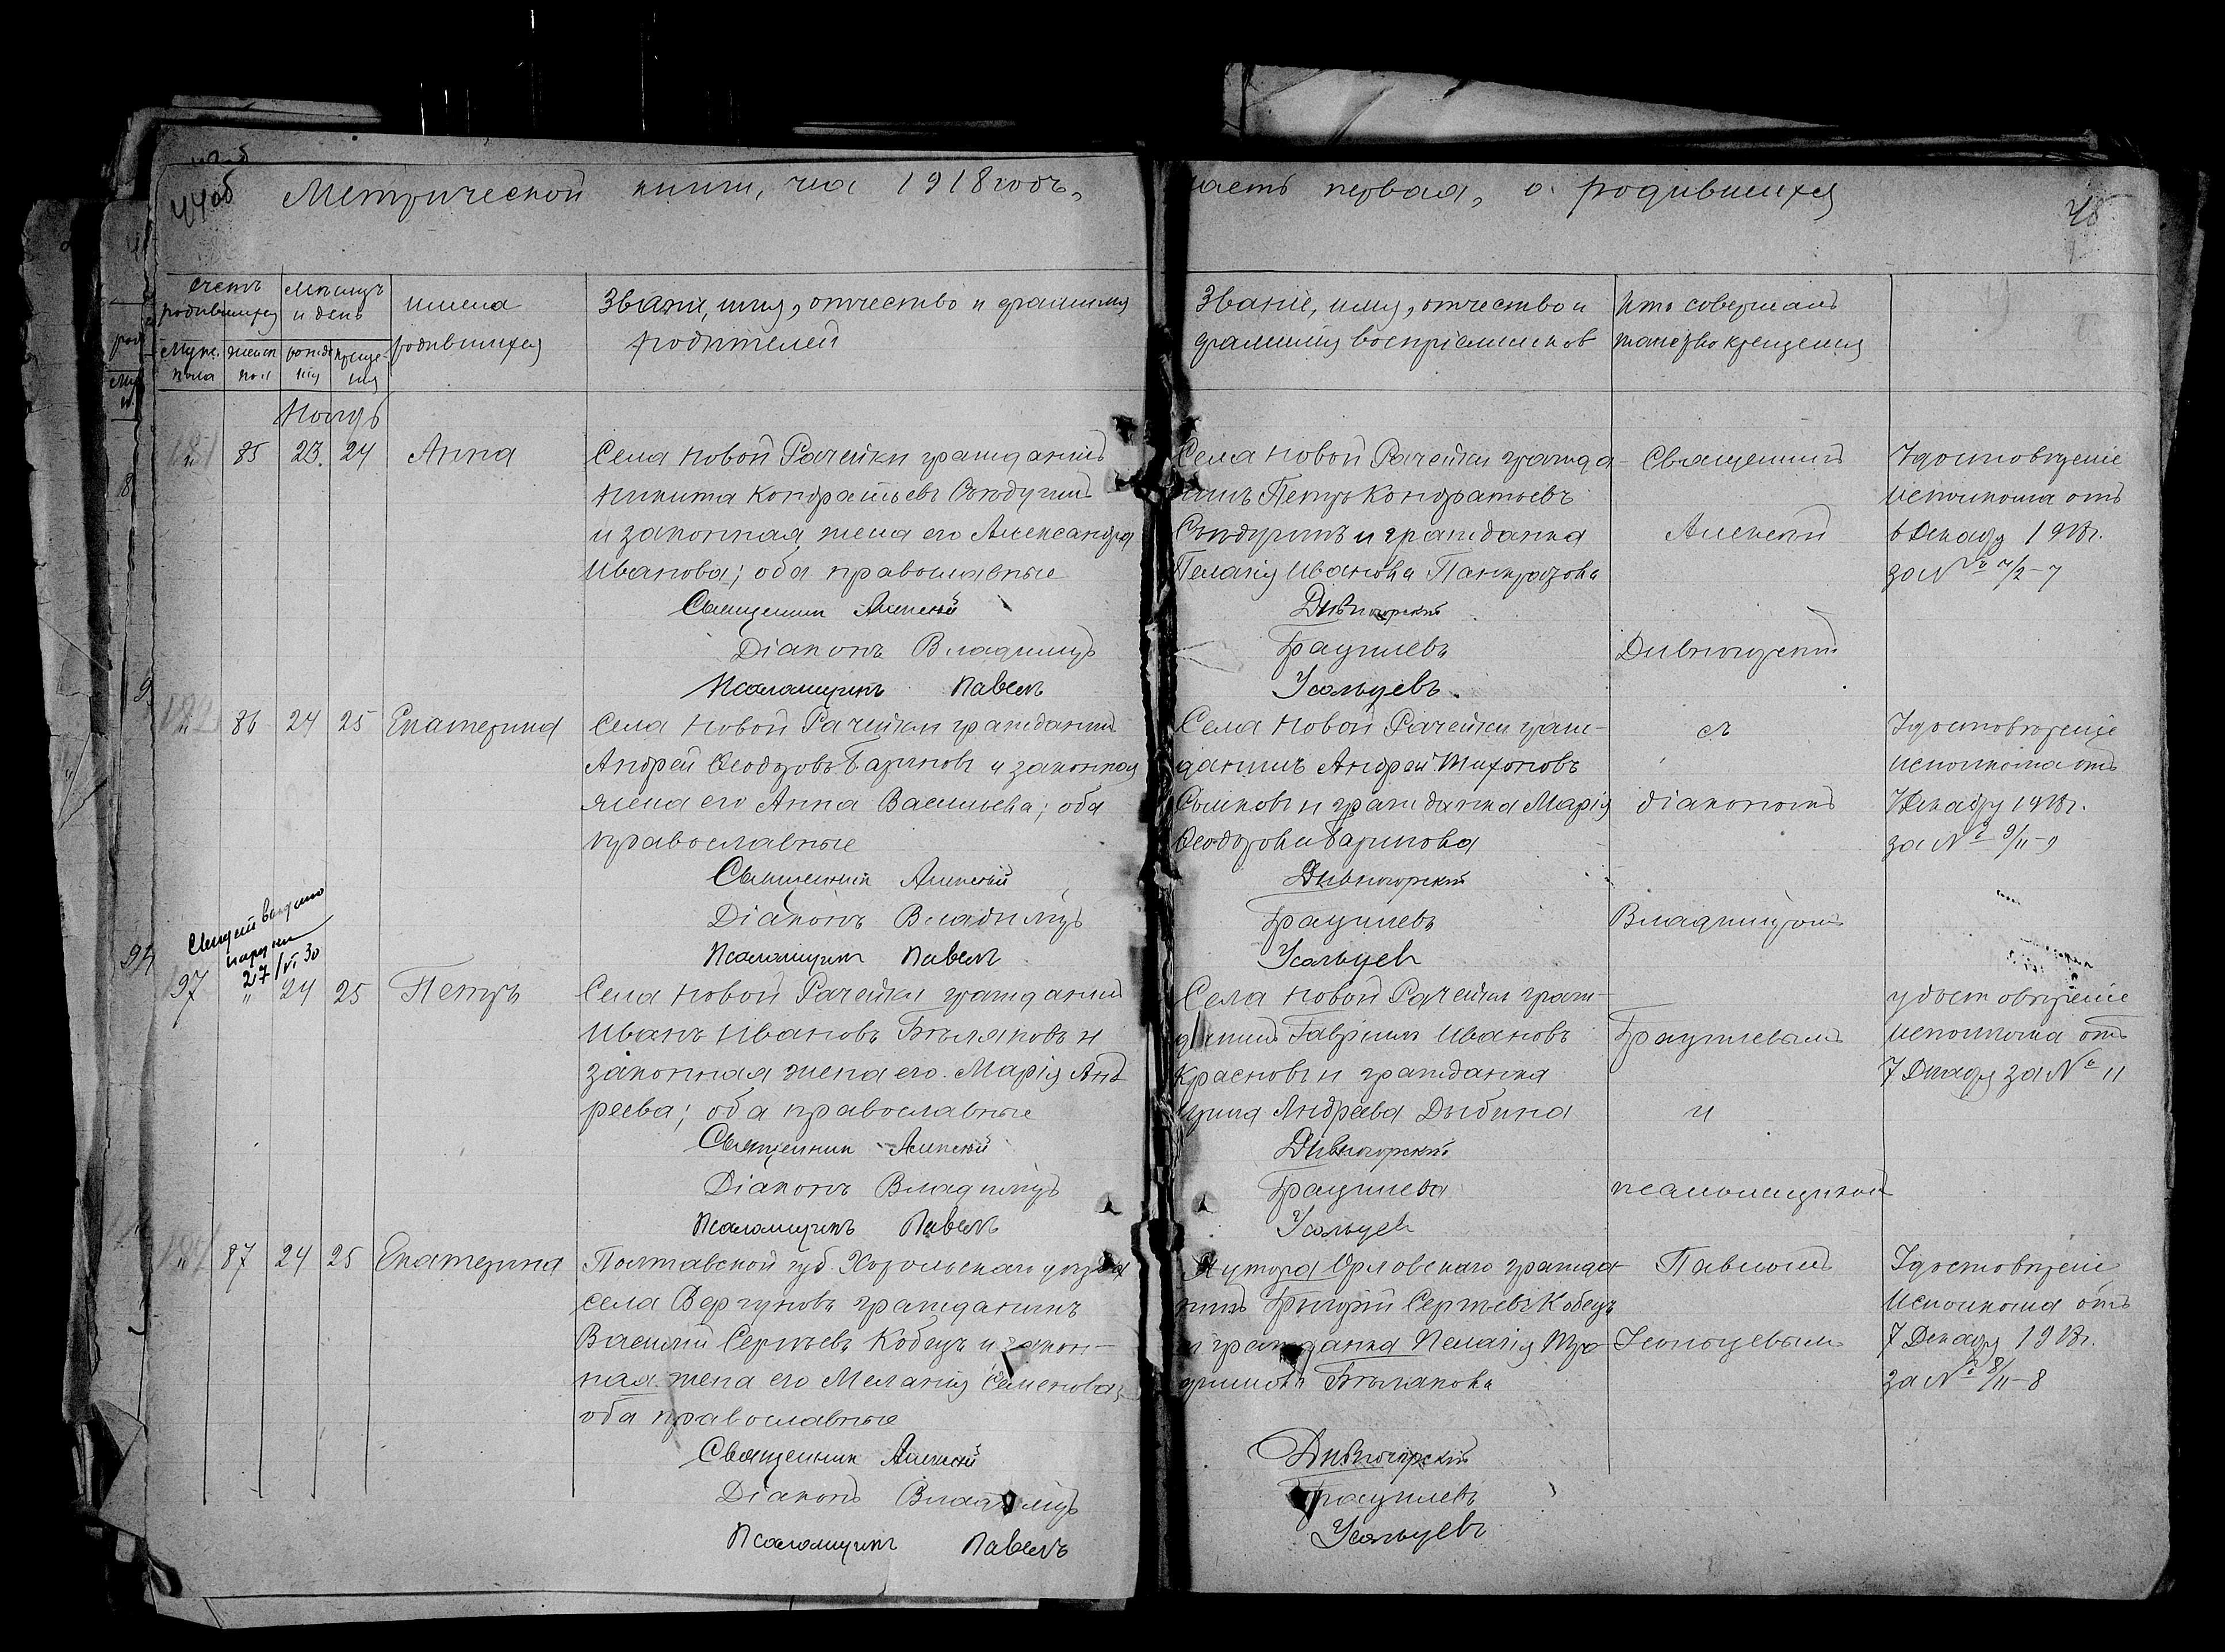 44об
Метрической книги, на 1918 годъ,
часть первая, о родившихся
Счетъ родившихся
Мѣсяцъ и день
имена родившихся
Званіе, имя, отчество и фамилия
родителей
Званіе, имя, отчество и
фамилия воспріемниковъ
Кто совершалъ
таинство крещения
Муж. пола
женск. пол
рожде нія
креще ния
Ноябрь
" 85 23. 24 Анна
Села Новой Рачейки гражданинъ
Никита Кондратьевъ
и законная жена его Александра
Иванова; оба православные
Священник Алексей
Діаконъ Владимиръ
Псаломщикъ Павелъ
Села Новой Рачейки гражда-
нинъ Петръ Кондратьевъ
и гражданка
Пелагія Иванова Панкратова
Дивногорский
Усольцевъ.
Священникъ
Алексей
Дивногорский
Удостовѣрение
исполкома от
6 Декабр 1918г.
за №
" 86 24 25 Екатерина
Села Новой Рачейки гражданин
Андрей Ѳеодоровъ Бариновъ и законная
жена его Анна Васильева; оба
православные
Священник Алексей
Діаконъ Владимиръ
Псаломщик Павелъ
Села Новой Рачейки граж-
данинъ Андрей Тихоновъ
и гражданка Марія
Ѳеодорова Баринова
Дивногорский
Усольцев
съ
діакономъ
Владимиромъ
Удостовѣрение
исполкома отъ
7 Декабр 1918г.
за № 9/11-9
выдано
27/VI 30
97 " 24 25 Петръ
Села Новой Рачейки гражданинъ
Иванъ Ивановъ Бѣляковъ и
законная жена его Марія Анд
реева; оба православные
Священник Алексей
Діаконъ Владимиръ
Псаломщикъ Павелъ
Села Новой Рачейки граж-
данинъ Гавріилъ Ивановъ
Красновъ и гражданка
Андреева Дыбина
Дивногорский
Усольцев
и
псаломщиком
удостовѣрение
исполкома отъ
7 Декабр за № 11
" 87 24 25 Екатерина
Полтавской губ. Хорольскаго уѣзда
села Вергуновъ гражданинъ
Василий Сергѣевъ Кобецъ и закон-
ная жена его Меланія Семенова;
оба православные
Священник Алексей
Діаконъ Владимиръ
Псаломщикъ Павелъ
Хутора Орловскаго гражда-
нинъ Григорій Сергѣевъ Кобецъ
и гражданка Пелагія Тро-
фимова Бѣлякова
Дивногорский
Усольцевъ
Павломъ
Усольцевымъ
Удостовѣрение
исполкома отъ
7 Декабр 1918г.
за № 8/11-8